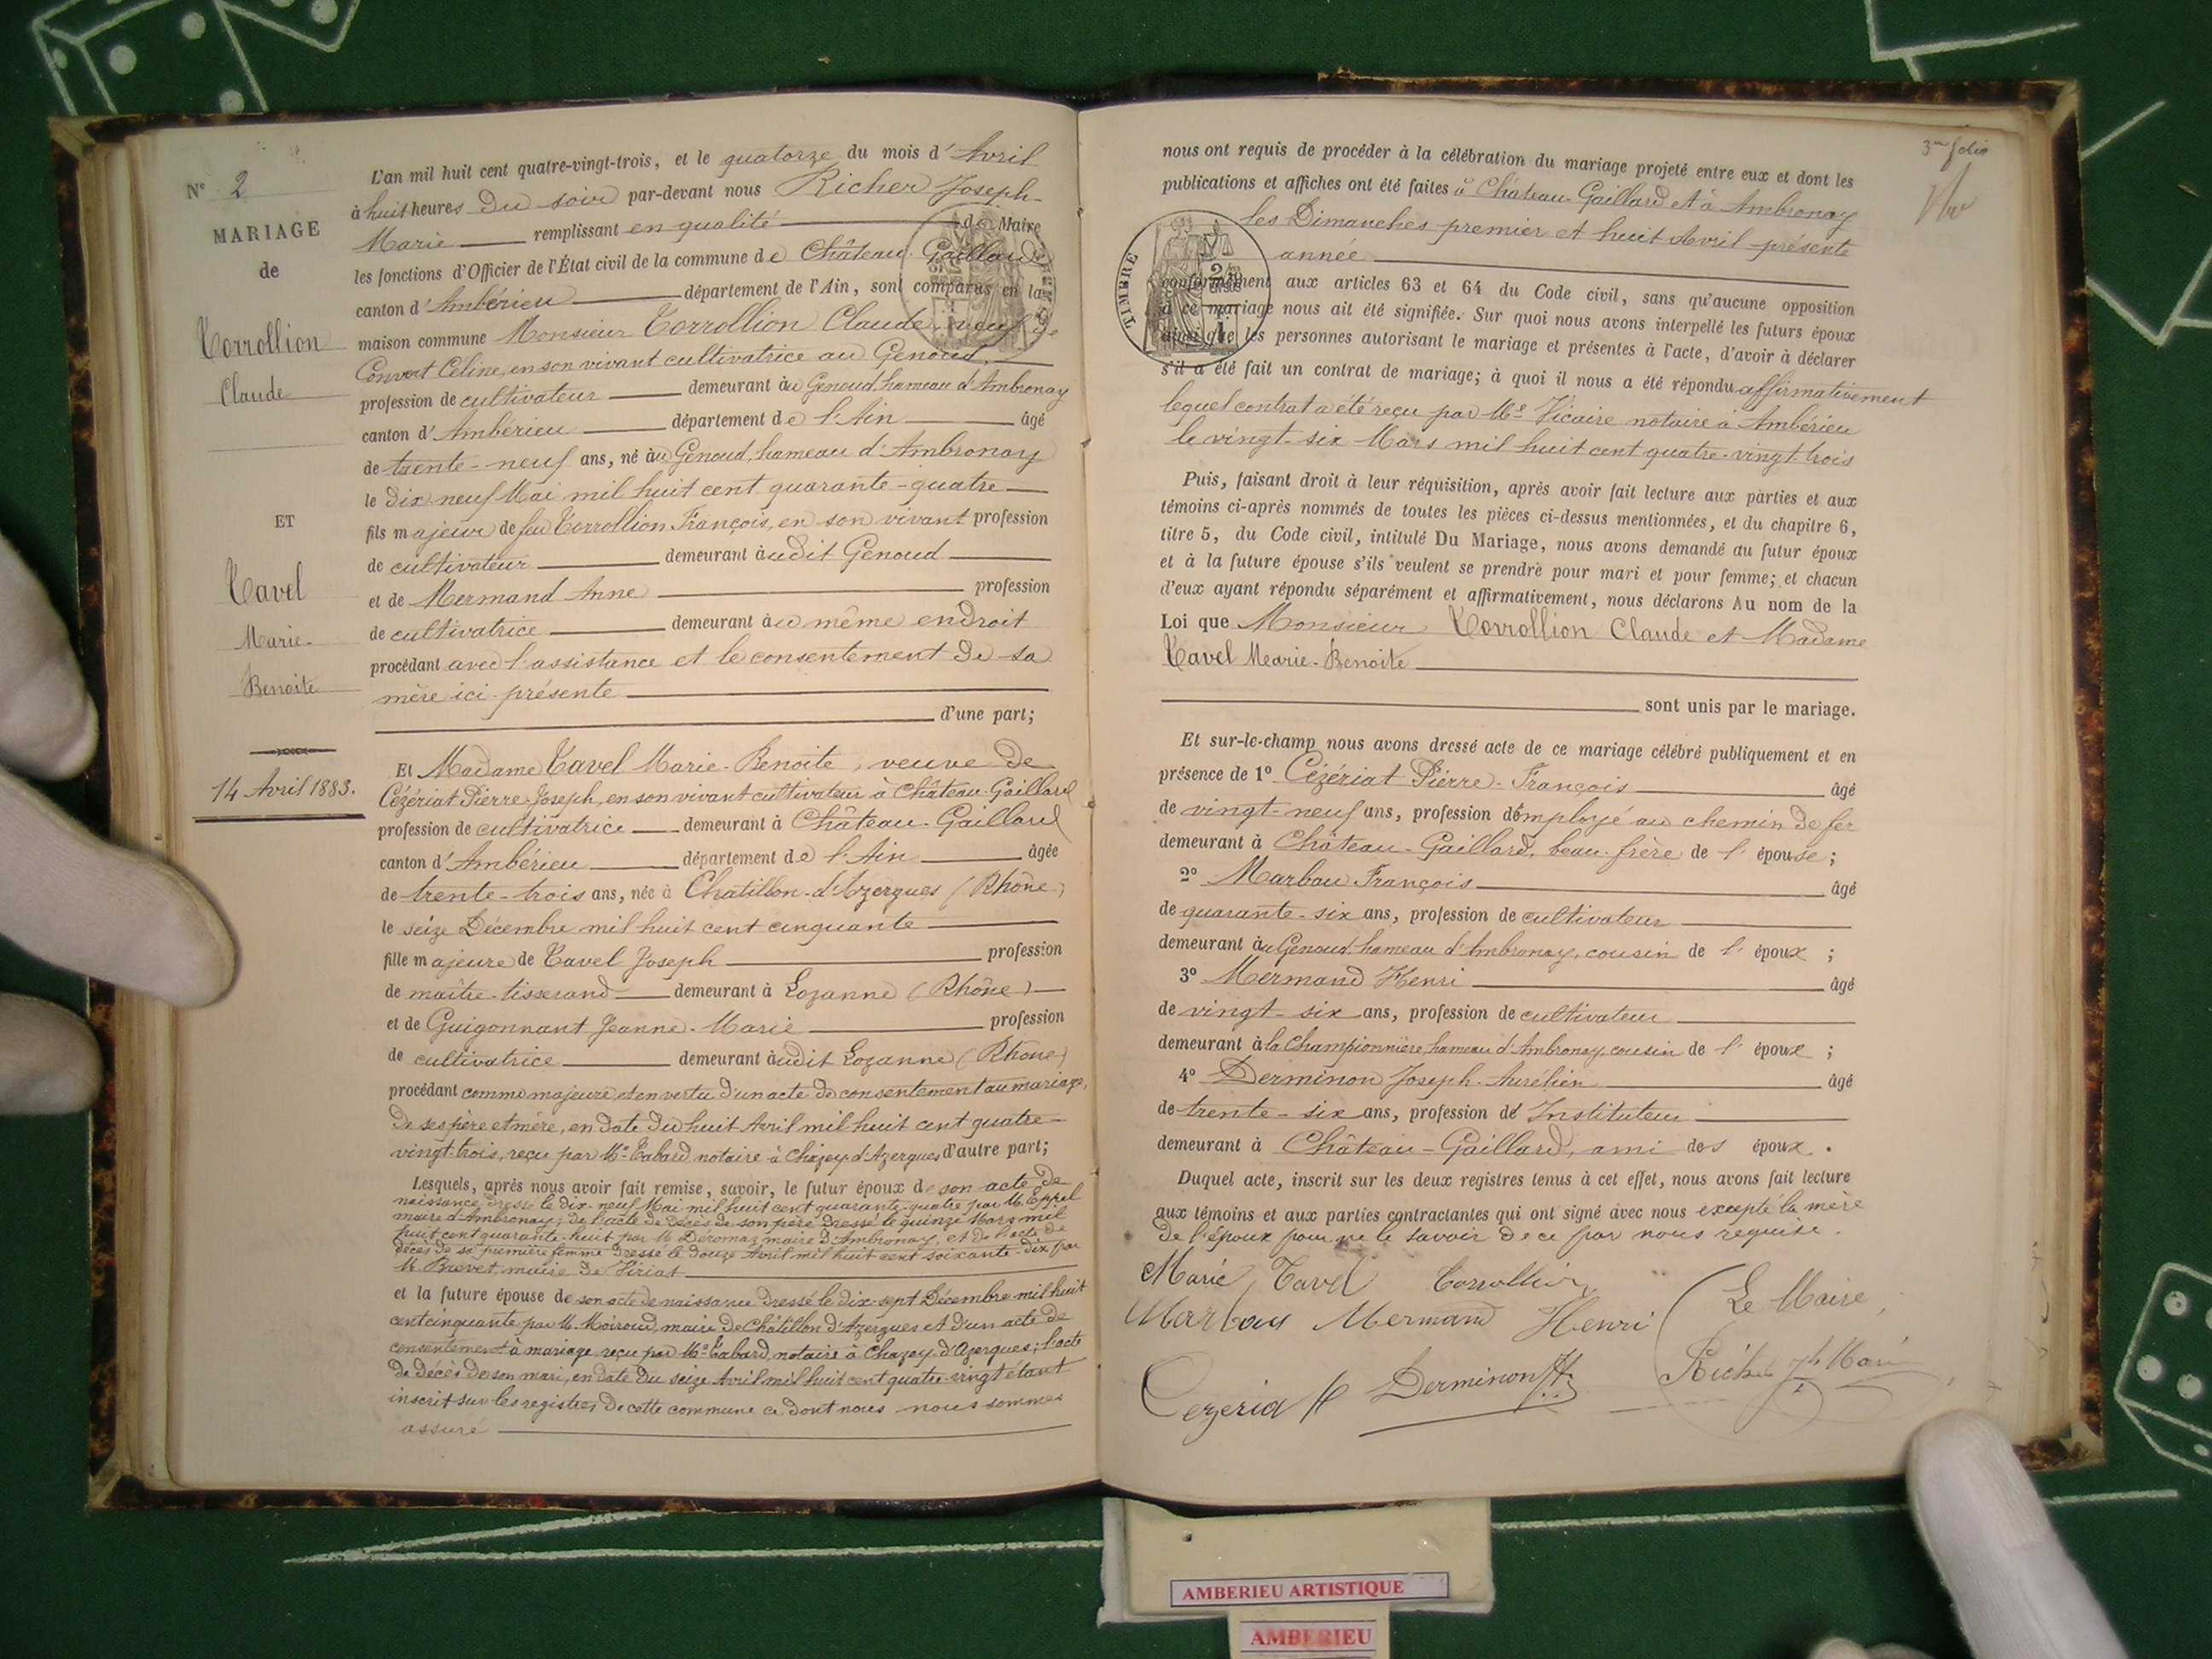 N° 2
MARIAGE
de
Torrollion
Claude
ET
Tavel
Marie-
Benoite
14 Avril 1883.
L'an mil huit cent quatre-vingt-trois, et le quatorze du mois d'Avril
à huit heures du soir par-devant nous Richer Joseph-
Marie remplissant en qualité de Maire
les fonctions d'Officier de l'État civil de la commune de Château-Gaillard
canton d'Ambérieu département de l'Ain, sont comparus en la
maison commune Monsieur Torrollion Claude, veuf de
Convert Céline, en son vivant cultivatrice au Genoud,
profession de cultivateur demeurant au Genoud, hameau d'Ambronay
canton d'Ambérieu département de l'Ain âgé
de trente-neuf ans, né au Genoud, hameau d'Ambronay
le dix-neuf Mai mil huit cent quarante-quatre
fils majeur de feu Torrollion François, en son vivant profession
de cultivateur demeurant audit Genoud
et de Mermand Anne profession
de cultivatrice demeurant au même endroit
procédant avec l'assistance et le consentement de sa
mère ici présente
d'une part;
Et Madame Tavel Marie-Benoite, veuve de
Cézériat Pierre-Joseph, en son vivant cultivateur à Château-Gaillard
profession de cultivatrice demeurant à Château-Gaillard
canton d'Ambérieu département de l'Ain âgée
de trente-trois ans, née à Chatillon-d'Azergues (Rhône)
le seize Décembre mil huit cent cinquante
fille majeure de Tavel Joseph profession
de maître-tisserand demeurant à Lozanne (Rhône)
et de Guigonnant Jeanne-Marie profession
de cultivatrice demeurant audit Lozanne (Rhône)
procédant comme majeure et en vertu d'un acte de consentement au mariage,
de ses père et mère, en date du huit Avril mil huit cent quatre-
vingt-trois, reçu par Me Tabard, notaire à Chazey-d'Azergues d'autre part;
Lesquels, après nous avoir fait remise, savoir, le futur époux de son acte de
naissance dressé le dix-neuf Mai mil huit cent quarante-quatre par M. Eppel
maire d'Ambronay; de l'acte de décès de son père dressé le quinze Mars mil
huit cent quarante-huit par M. Deromaz maire d'Ambronay, et de l'acte de
décès de sa première femme dressé le douze Avril mil huit cent soixante-dix par
M. Brevet, maire de Viriat
et la future épouse de son acte de naissance dressé le dix-sept Décembre mil huit
cent cinquante par M. Moiroud, maire de Châtillon d'Azergues et d'un acte de
consentement à mariage reçu par Me Tabard, notaire à Chazey-d'Azergues; l'acte
de décès de son mari, en date du seize Avril mil huit cent quatre-vingt étant
inscrit sur les registres de cette commune ce dont nous nous sommes
assuré
3me folio
nous ont requis de procéder à la célébration du mariage projeté entre eux et dont les
publications et affiches ont été faites à Château-Gaillard et à Ambronay
les Dimanches premier et huit Avril présente
année
TIMBRE
conformément aux articles 63 et 64 du Code civil, sans qu'aucune opposition
à ce mariage nous ait été signifiée. Sur quoi nous avons interpellé les futurs époux
ainsi que les personnes autorisant le mariage et présentes à l'acte, d'avoir à déclarer
s'il a été fait un contrat de mariage; à quoi il nous a été répondu affirmativement
lequel contrat a été reçu par Me Vicaire notaire à Ambérieu
le vingt-six Mars mil huit cent quatre-vingt-trois
Puis, faisant droit à leur réquisition, après avoir fait lecture aux parties et aux
témoins ci-après nommés de toutes les pièces ci-dessus mentionnées, et du chapitre 6,
titre 5, du Code civil, intitulé Du Mariage, nous avons demandé au futur époux
et à la future épouse s'ils veulent se prendre pour mari et pour femme; et chacun
d'eux ayant répondu séparément et affirmativement, nous déclarons Au nom de la
Loi que Monsieur Torrollion Claude et Madame
Tavel Marie-Benoite
sont unis par le mariage.
Et sur-le-champ nous avons dressé acte de ce mariage célébré publiquement et en
présence de 1° Cézériat Pierre-François âgé
de vingt-neuf ans, profession d'employé au chemin de fer
demeurant à Château-Gaillard, beau-frère de l'épouse;
2° Marbou François âgé
de quarante-six ans, profession de cultivateur
demeurant au Genoud, hameau d'Ambronay, cousin de l'époux;
3° Mermand Henri âgé
de vingt-six ans, profession de cultivateur
demeurant à la Championnière, hameau d'Ambronay, cousin de l'époux;
4° Derminon Joseph-Aurélien âgé
de trente-six ans, profession d' Instituteur
demeurant à Château-Gaillard, ami des époux.
Duquel acte, inscrit sur les deux registres tenus à cet effet, nous avons fait lecture
aux témoins et aux parties contractantes qui ont signé avec nous excepté la mère
de l'époux pour ne le savoir de ce par nous requise.
Marie Tavel Torrollion
Marbou Mermand Henri
Le Maire,
Cezeria Derminon
Richer Jh Marie
AMBERIEU ARTISTIQUE
AMBERIEU